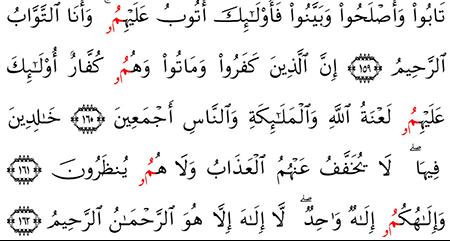 تَابُواْ وَأَصْلَحُواْ وَبَيَّنُواْ فَأُوْلَٰٓئِكَ أَتُوبُ عَلَيْهِمُۥ ۚ وَأَنَا اَ۬لتَّوَّابُ
اُ۬لرَّحِيمُ ١٥٩ إِنَّ اَ۬لَّذِينَ كَفَرُواْ وَمَاتُواْ وَهُمُۥ كُفَّارٌ أُوْلَٰٓئِكَ
عَلَيْهِمُۥ لَعْنَةُ اُ۬للَّهِ وَالْمَلَٰٓئِكَةِ وَالنَّاسِ أَجْمَعِينَ ١٦٠ خَٰلِدِينَ
فِيهَا ۖ لَا يُخَفَّفُ عَنْهُمُ اُ۬لْعَذَابُ وَلَا هُمُۥ يُنظَرُونَ ١٦١
وَإِلَٰهُكُمُۥ إِلَٰهٌ وَٰحِدٌ ۖ لَّا إِلَٰهَ إِلَّا هُوَ اَ۬لرَّحْمَٰنُ اُ۬لرَّحِيمُ ١٦٢